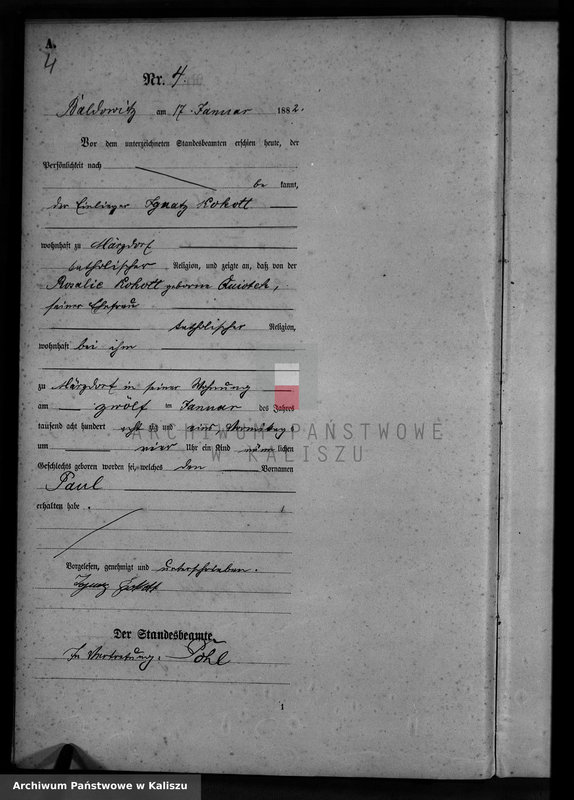 A.
4
Nr. 4.
Baldowitz am 17. Januar 1882.
Vor dem unterzeichneten Standesbeamten erschien heute, der
Persönlichkeit nach
be kannt,
der Einlieger Ignatz Kokott
wohnhaft zu Märzdorf
katholischer Religion, und zeigte an, daß von der
Rosalie Kokott geborene
seiner Ehefrau
katholischer Religion,
wohnhaft bei ihm
zu Märzdorf in seiner Wohnung
am zwölf ten Januar des Jahres
tausend acht hundert acht zig und Vormittags
um vier Uhr ein Kind männ lichen
Geschlechts geboren worden sei, welches den Vornamen
Paul
erhalten habe.
Vorgelesen, genehmigt und unterschrieben.
Ignatz Kokott
Der Standesbeamte.
In Vertretung. Pohl
1
ARCHIWUM PAŃSTWOWE
W KALISZU
Archiwum Państwowe w Kaliszu